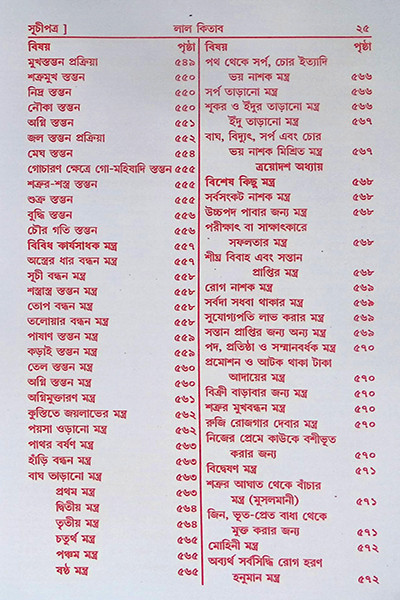 সূচীপত্র ] লাল কিতাব ২৫
বিষয় পৃষ্ঠা
মুখস্তম্ভন প্রক্রিয়া ৫৪৯
শত্রুমুখ স্তম্ভন ৫৫০
নিদ্র স্তম্ভন ৫৫০
নৌকা স্তম্ভন ৫৫০
অগ্নি স্তম্ভন ৫৫১
জল স্তম্ভন প্রক্রিয়া ৫৫২
মেঘ স্তম্ভন ৫৫৪
গোচারণ ক্ষেত্রে গো-মহিষাদি স্তম্ভন ৫৫৫
শত্রুর-শস্ত্র স্তম্ভন ৫৫৫
শুক্র স্তম্ভন ৫৫৫
বুদ্ধি স্তম্ভন ৫৫৬
চৌর গতি স্তম্ভন ৫৫৬
বিবিধ কার্যসাধক মন্ত্র ৫৫৭
অস্ত্রের ধার বন্ধন মন্ত্র ৫৫৭
সূচী বন্ধন মন্ত্র ৫৫৮
শস্ত্রাস্ত্র স্তম্ভন মন্ত্র ৫৫৮
তোপ বন্ধন মন্ত্র ৫৫৮
তলোয়ার বন্ধন মন্ত্র ৫৫৮
পাষাণ স্তম্ভন মন্ত্র ৫৫৯
কড়াই স্তম্ভন মন্ত্র ৫৫৯
তেল স্তম্ভন মন্ত্র ৫৬০
অগ্নি স্তম্ভন মন্ত্র ৫৬০
অগ্নিমুক্তারণ মন্ত্র ৫৬১
কুস্তিতে জয়লাভের মন্ত্র ৫৬২
পয়সা ওড়ানো মন্ত্র ৫৬২
পাথর বর্ষণ মন্ত্র ৫৬৩
হাঁড়ি বন্ধন মন্ত্র ৫৬৩
বাঘ তাড়ানো মন্ত্র ৫৬৩
প্রথম মন্ত্র ৫৬৩
দ্বিতীয় মন্ত্র ৫৬৪
তৃতীয় মন্ত্র ৫৬৪
চতুর্থ মন্ত্র ৫৬৫
পঞ্চম মন্ত্র ৫৬৫
ষষ্ঠ মন্ত্র ৫৬৫
বিষয় পৃষ্ঠা
পথ থেকে সর্প, চোর ইত্যাদি
ভয় নাশক মন্ত্র ৫৬৬
সর্প তাড়ানো মন্ত্র ৫৬৬
শূকর ও ইঁদুর তাড়ানো মন্ত্র ৫৬৬
ইঁদু তাড়ানো মন্ত্র ৫৬৭
বাঘ, বিদ্যুৎ, সর্প এবং চোর
ভয় নাশক মিশ্রিত মন্ত্র ৫৬৭
ত্রয়োদশ অধ্যায়
বিশেষ কিছু মন্ত্র ৫৬৮
সর্বসংকট নাশক মন্ত্র ৫৬৮
উচ্চপদ পাবার জন্য মন্ত্র ৫৬৮
পরীক্ষায় বা সাক্ষাৎকারে
সফলতার মন্ত্র ৫৬৮
শীঘ্র বিবাহ এবং সন্তান
প্রাপ্তির মন্ত্র ৫৬৮
রোগ নাশক মন্ত্র ৫৬৯
সর্বদা সধবা থাকার মন্ত্র ৫৬৯
সুযোগ্যপতি লাভ করার মন্ত্র ৫৬৯
সন্তান প্রাপ্তির জন্য অন্য মন্ত্র ৫৬৯
পদ, প্রতিষ্ঠা ও সম্মানবর্ধক মন্ত্র ৫৭০
প্রমোশন ও আটক থাকা টাকা
আদায়ের মন্ত্র ৫৭০
বিক্রী বাড়াবার জন্য মন্ত্র ৫৭০
শত্রুর মুখবন্ধন মন্ত্র ৫৭০
রুজি রোজগার দেবার মন্ত্র ৫৭০
নিজের প্রেমে কাউকে বশীভূত
করার জন্য ৫৭০
বিদ্বেষণ মন্ত্র ৫৭১
শত্রুর আঘাত থেকে বাঁচার
মন্ত্র (মুসলমানী) ৫৭১
জিন, ভূত-প্রেত বাধা থেকে
মুক্ত করার জন্য ৫৭১
মোহিনী মন্ত্র ৫৭২
অব্যর্থ সর্বসিদ্ধি রোগ হরণ
হনুমান মন্ত্র ৫৭২